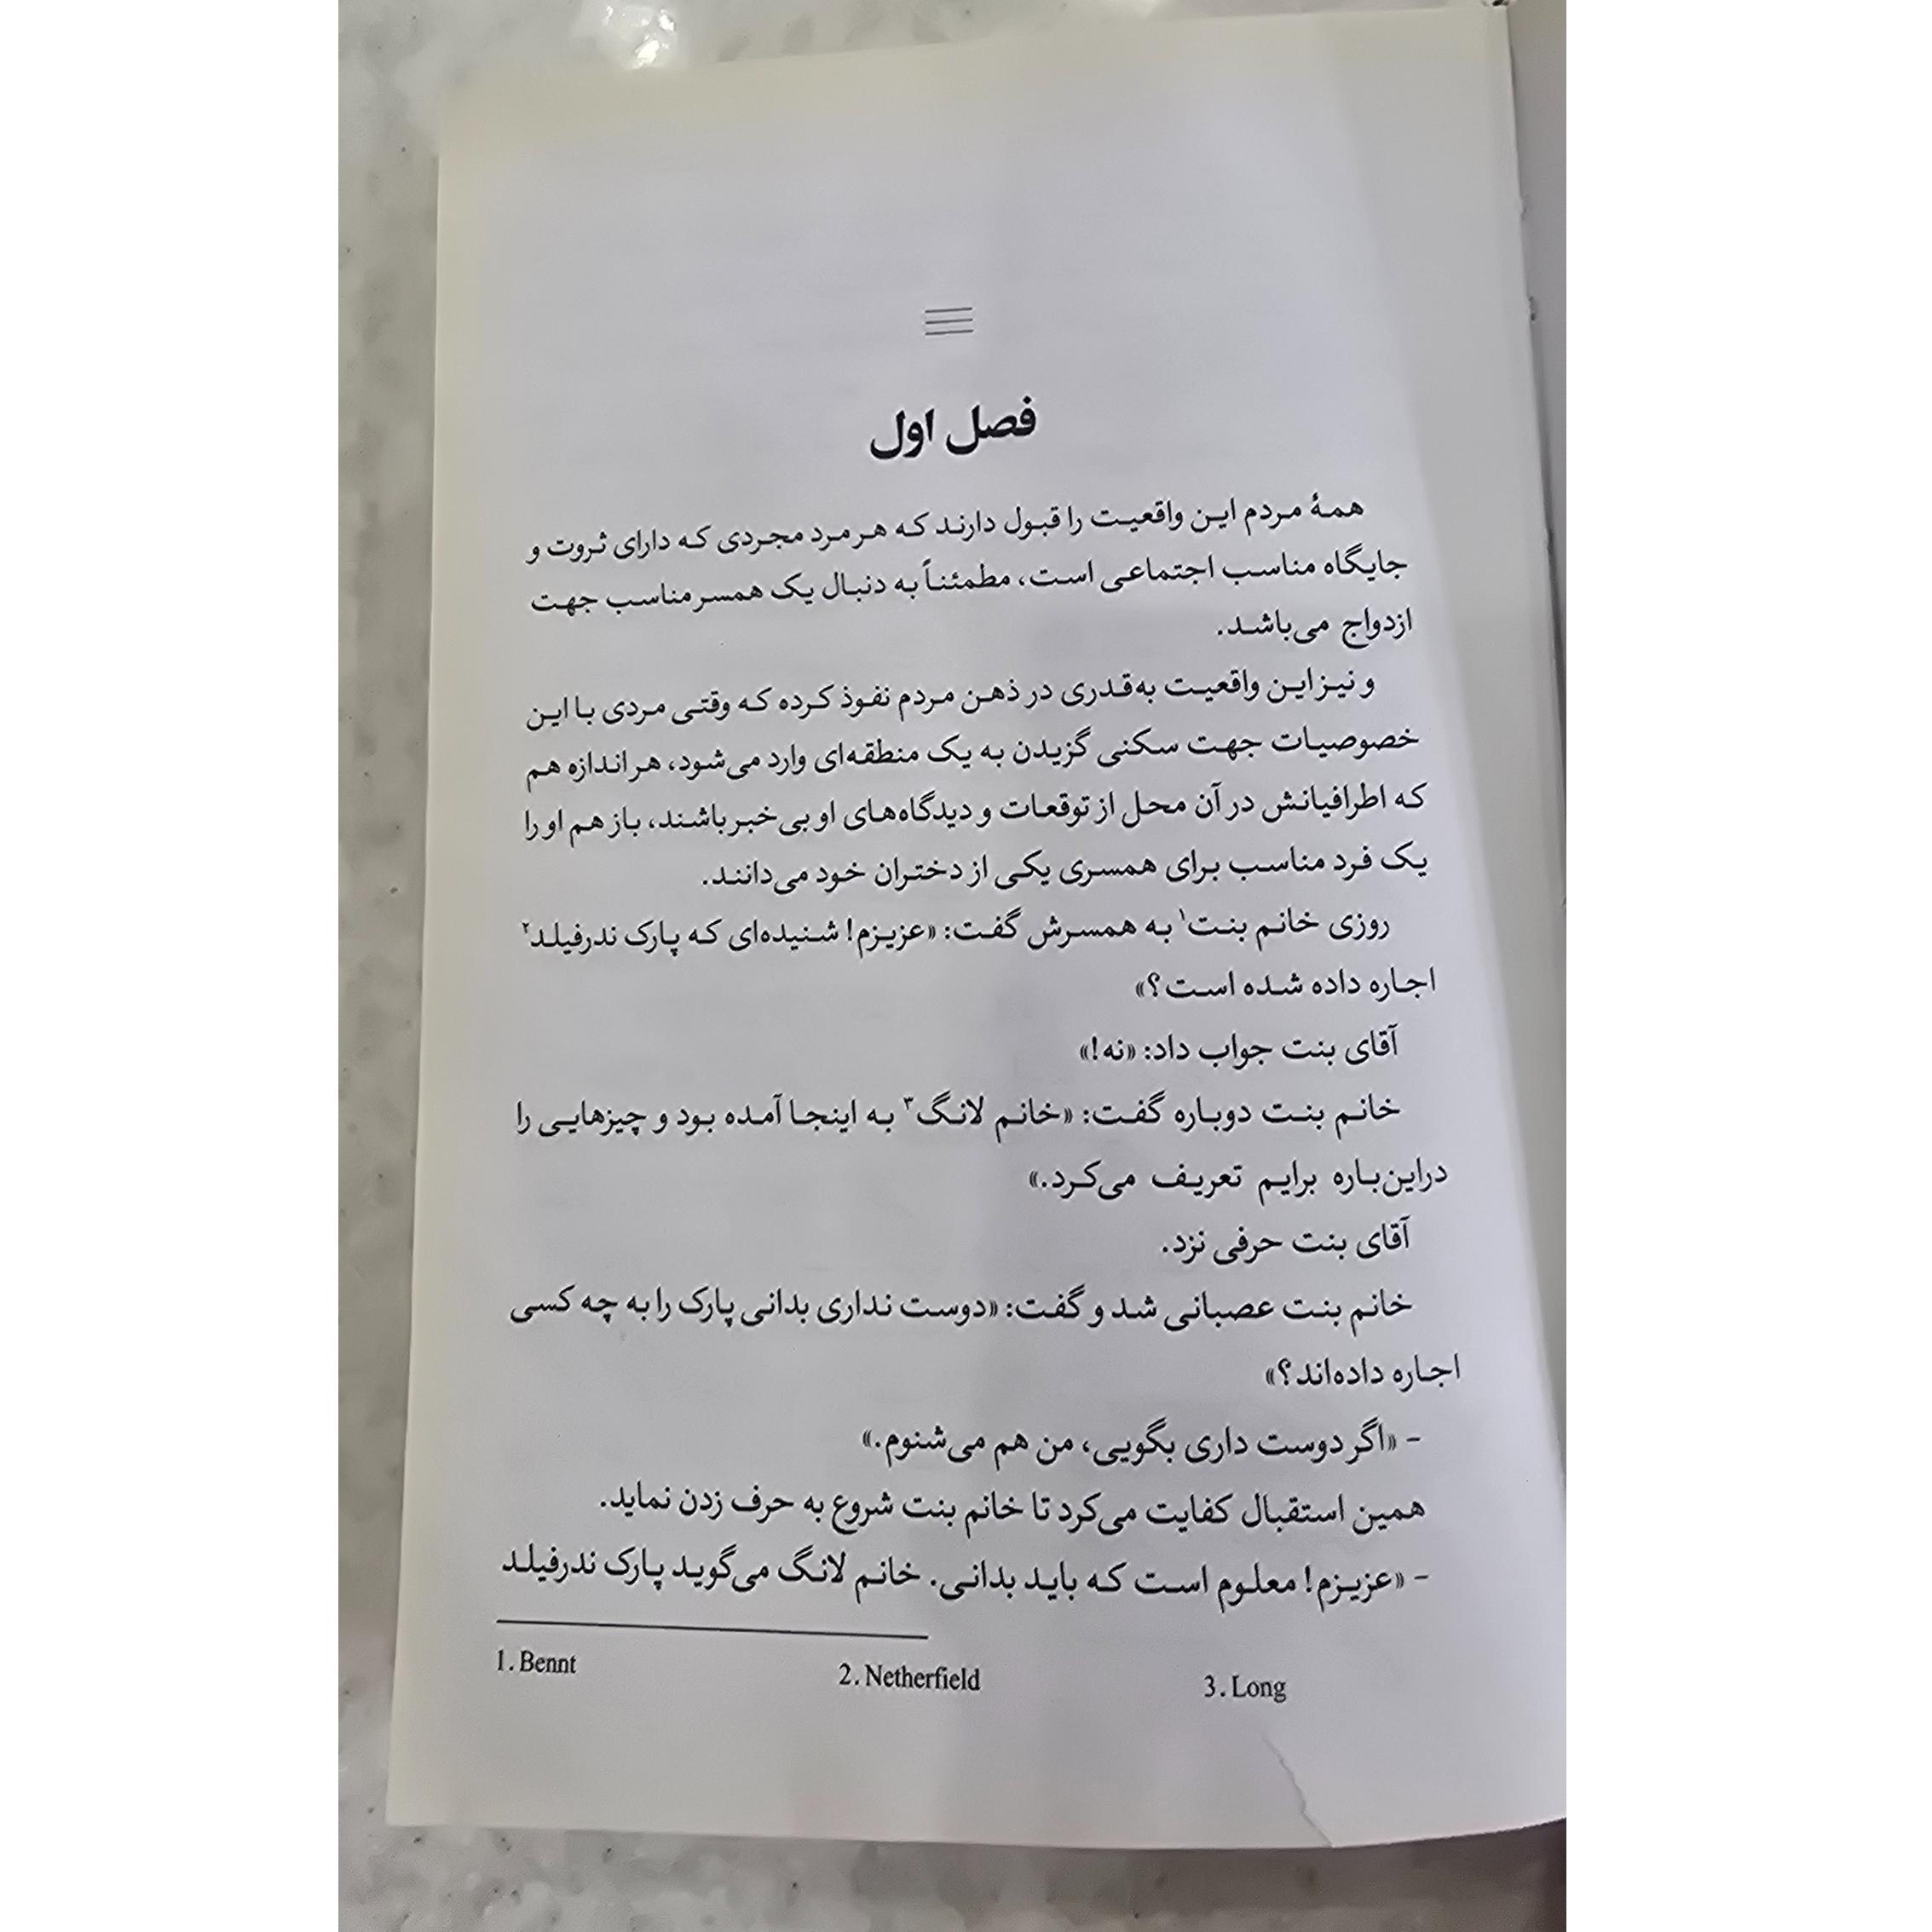 فصل اول
همهٔ مردم این واقعیت را قبول دارند که هر مرد مجردی که دارای ثروت و
جایگاه مناسب اجتماعی است، مطمئناً به دنبال یک همسر مناسب جهت
ازدواج می‌باشد.
و نیز این واقعیت به‌قدری در ذهن مردم نفوذ کرده که وقتی مردی با این
خصوصیات جهت سکنی گزیدن به یک منطقه‌ای وارد می‌شود، هر اندازه هم
که اطرافیانش در آن محل از توقعات و دیدگاه‌های او بی‌خبر باشند، باز هم او را
یک فرد مناسب برای همسری یکی از دختران خود می‌دانند.
روزی خانم بنت۱ به همسرش گفت: «عزیزم! شنیده‌ای که پارک ندرفیلد۲
اجاره داده شده است؟»
آقای بنت جواب داد: «نه!»
خانم بنت دوباره گفت: «خانم لانگ۳ به اینجا آمده بود و چیزهایی را
دراین‌باره برایم تعریف می‌کرد.»
آقای بنت حرفی نزد.
خانم بنت عصبانی شد و گفت: «دوست نداری بدانی پارک را به چه کسی
اجاره داده‌اند؟»
- «اگر دوست داری بگویی، من هم می‌شنوم.»
همین استقبال کفایت می‌کرد تا خانم بنت شروع به حرف زدن نماید.
- «عزیزم! معلوم است که باید بدانی. خانم لانگ می‌گوید پارک ندرفیلد
1. Bennt 2. Netherfield 3. Long